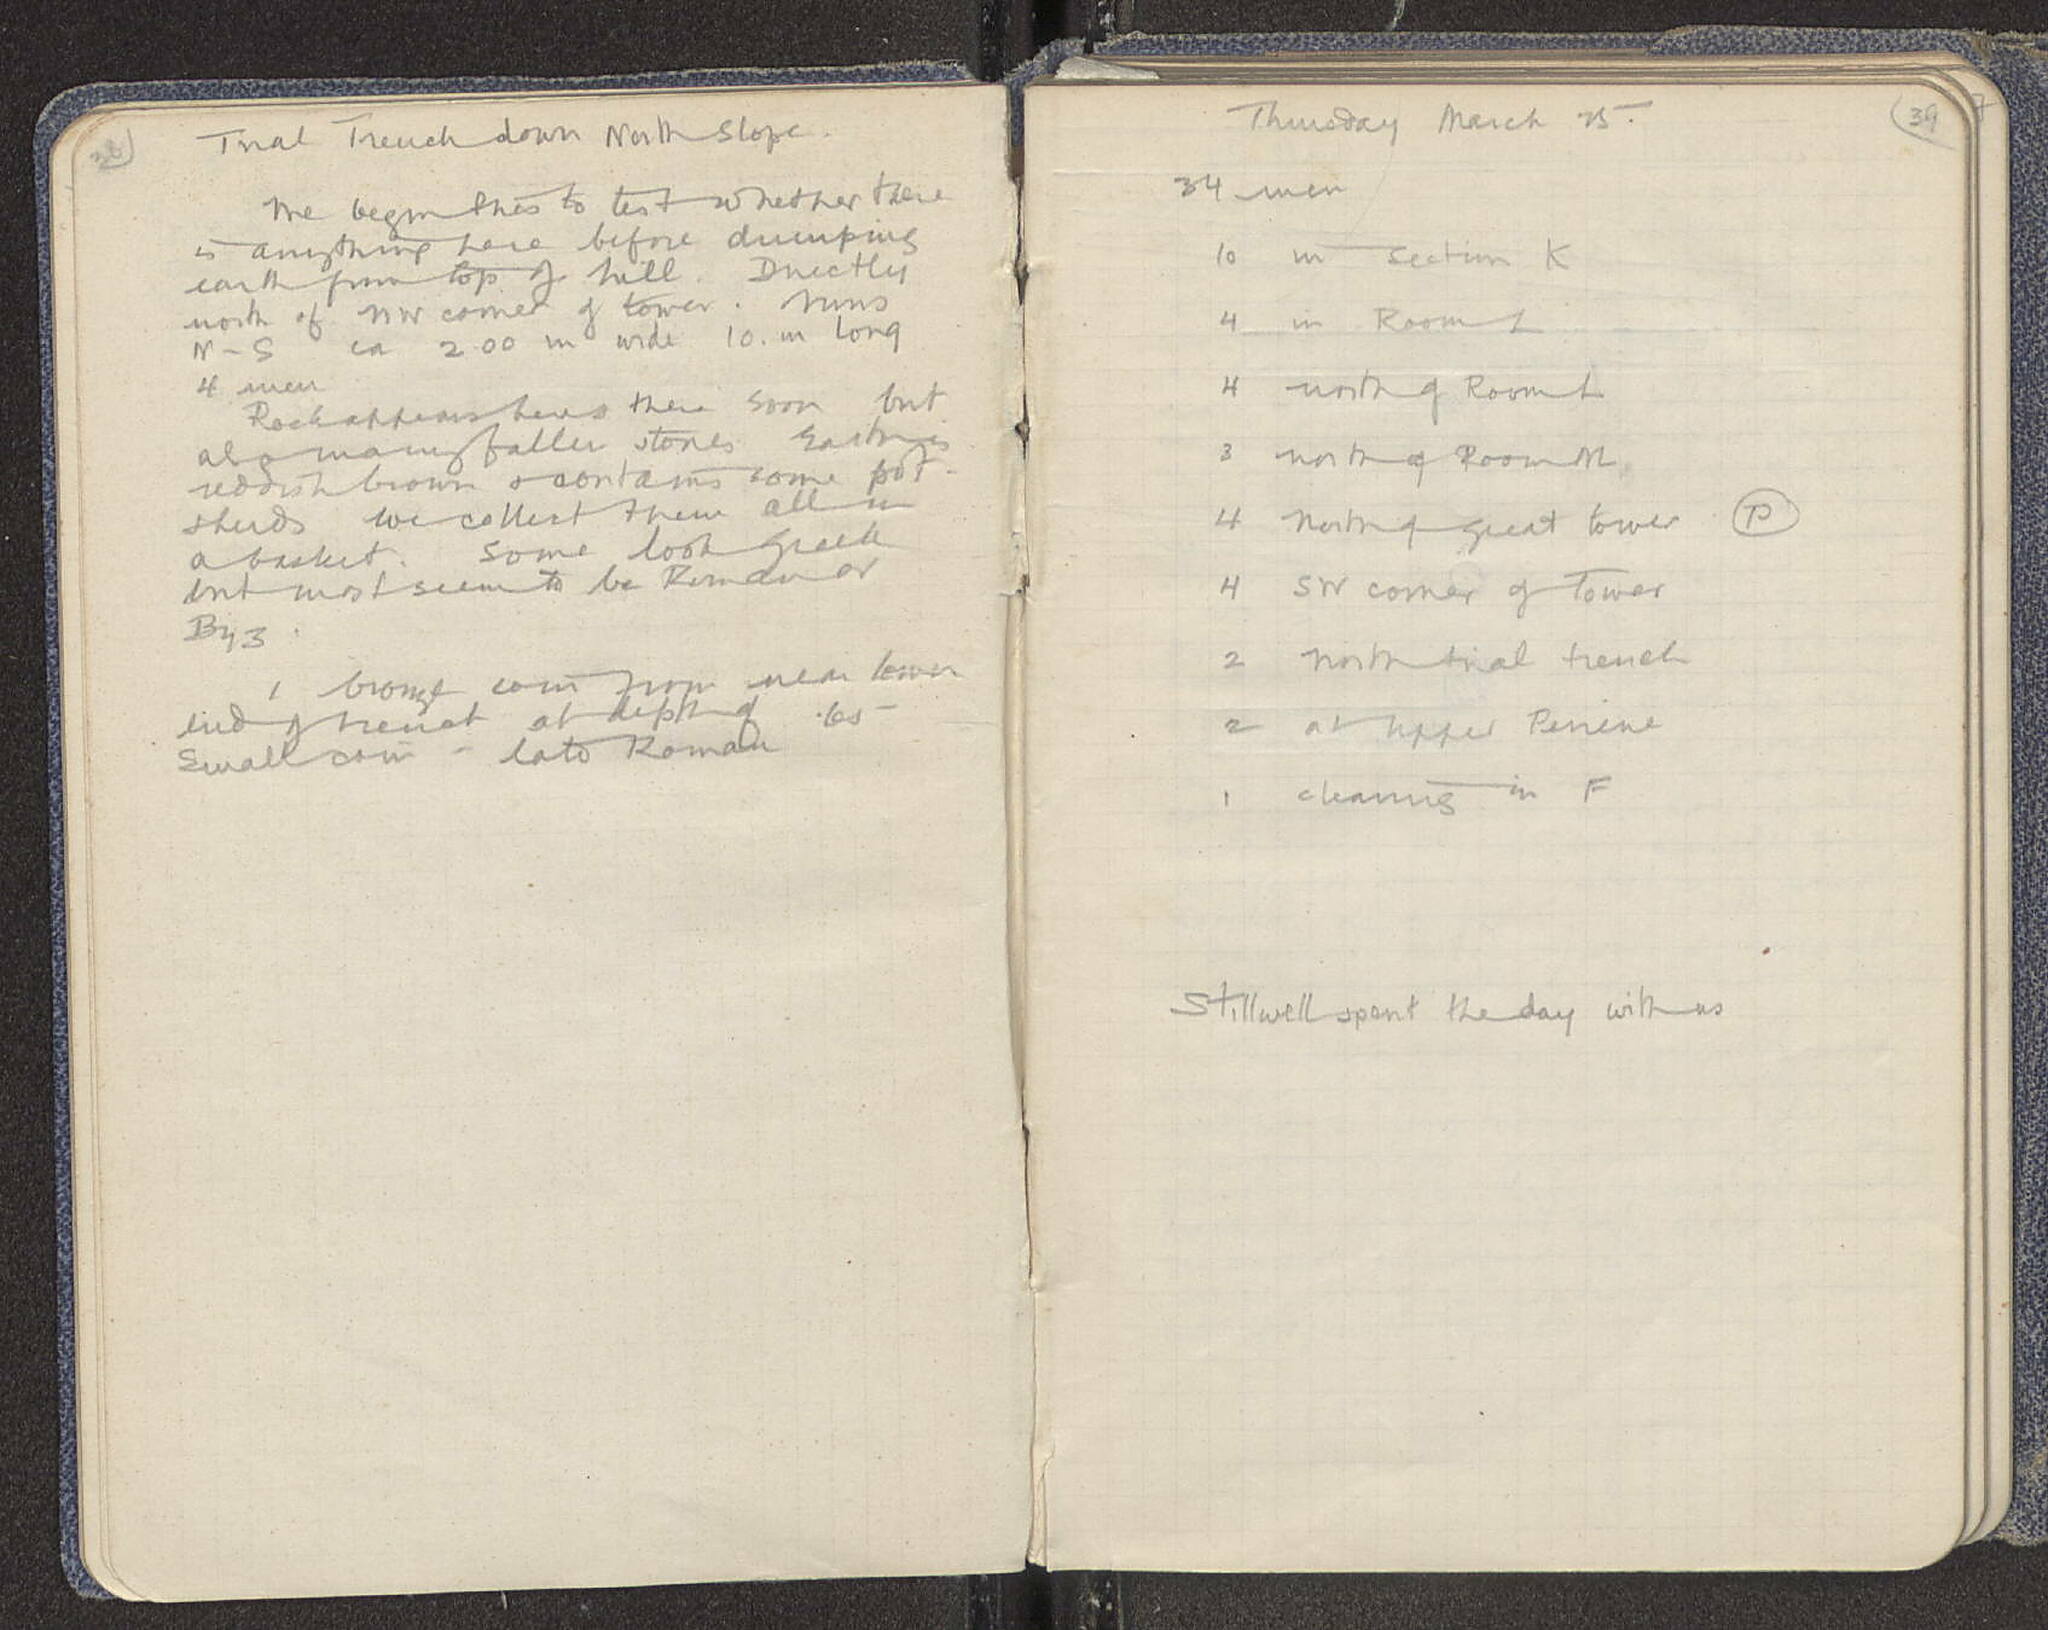 38
Trial Trench down North Slope.
We begin this to test whether there
is anything here before dumping
earth from top of hill. Directly
north of NW corner of tower. Runs
N-S ca 2.00 m wide 10. m long
4 men
Rock appears here & there soon but
also many fallen stones Earth is
reddish brown & contains some pot-
sherds We collect them all in
a basket. Some look Greek
but most seem to be Roman or
Byz.
1 bronze coin from near lower
end of trench at depth of .65
Small coin - late Roman
39
Thursday March 25.
34 men
10 in section K
4 in Room L
4 north of Room L
3 north of Room M
4 North of great tower P
4 SW corner of Tower
2 North trial trench
2 at Upper Peirene
1 cleaning in F
Stillwell spent the day with us